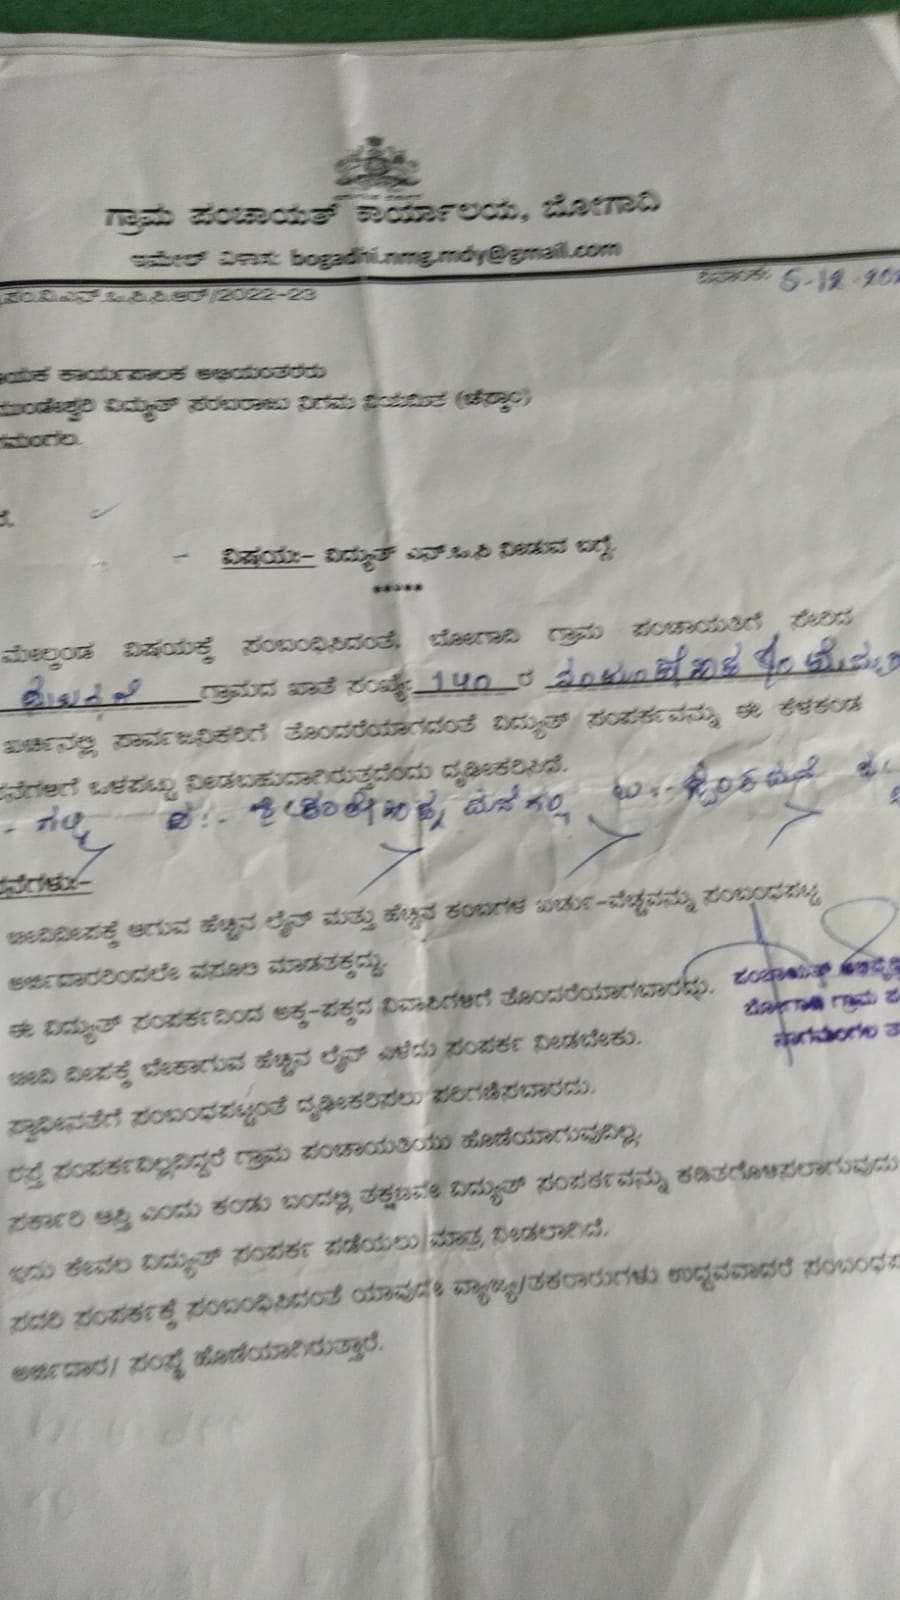 ಗ್ರಾಮ ಪಂಚಾಯತ್ ಕಾರ್ಯಾಲಯ, ಬೋಗಾದಿ
ಇಮೇಲ್ ವಿಳಾಸ: bogadhi.nmg.mdy@gmail.com
ಪಂ.ವಿ.ಎನ್.ಒ.ಸಿ.ಸಿ.ಆರ್/2022-23
ದಿನಾಂಕ: 5-12-202
ಯಕ ಕಾರ್ಯಪಾಲಕ ಅಭಿಯಂತರರು
ಮುಂಡೇಶ್ವರಿ ವಿದ್ಯುತ್ ಸರಬರಾಜು ನಿಗಮ ನಿಯಮಿತ (ಚೆಸ್ಕಾಂ)
ಗಮಂಗಲ.
ರೆ,
ವಿಷಯ:- ವಿದ್ಯುತ್ ಎನ್.ಒ.ಸಿ ನೀಡುವ ಬಗ್ಗೆ.
*****
ಮೇಲ್ಕಂಡ ವಿಷಯಕ್ಕೆ ಸಂಬಂಧಿಸಿದಂತೆ, ಬೋಗಾದಿ ಗ್ರಾಮ ಪಂಚಾಯತಿಗೆ ಸೇರಿದ
ಗ್ರಾಮದ ಖಾತೆ ಸಂಖ್ಯೆ: 140 ರ
ಖರ್ಚಿನಲ್ಲಿ ಸಾರ್ವಜನಿಕರಿಗೆ ತೊಂದರೆಯಾಗದಂತೆ ವಿದ್ಯುತ್ ಸಂಪರ್ಕವನ್ನು ಈ ಕೆಳಕಂಡ
ನೆಗಳಿಗೆ ಒಳಪಟ್ಟು ನೀಡಬಹುದಾಗಿರುತ್ತದೆಂದು ದೃಢೀಕರಿಸಿದೆ.
ನೆಗಳು:-
ಬೀದಿದೀಪಕ್ಕೆ ಆಗುವ ಹೆಚ್ಚಿನ ಲೈನ್ ಮತ್ತು ಹೆಚ್ಚಿನ ಕಂಬಗಳ ಖರ್ಚು-ವೆಚ್ಚವನ್ನು ಸಂಬಂಧಪಟ್ಟ
ಅರ್ಜಿದಾರರಿಂದಲೇ ವಸೂಲಿ ಮಾಡತಕ್ಕದ್ದು.
ಈ ವಿದ್ಯುತ್ ಸಂಪರ್ಕದಿಂದ ಅಕ್ಕ-ಪಕ್ಕದ ನಿವಾಸಿಗಳಿಗೆ ತೊಂದರೆಯಾಗಬಾರದು.
ಬೀದಿ ದೀಪಕ್ಕೆ ಬೇಕಾಗುವ ಹೆಚ್ಚಿನ ಲೈನ್ ಎಳೆದು ಸಂಪರ್ಕ ನೀಡಬೇಕು.
ಪಂಚಾಯತ್
ಬೋಗಾದಿ ಗ್ರಾಮ ಪ
ನಾಗಮಂಗಲ ತಾ
ಸ್ವಾಧೀನತೆಗೆ ಸಂಬಂಧಪಟ್ಟಂತೆ ದೃಢೀಕರಿಸಲು ಪರಿಗಣಿಸಬಾರದು.
ರಸ್ತೆ ಸಂಪರ್ಕವಿಲ್ಲದಿದ್ದರೆ ಗ್ರಾಮ ಪಂಚಾಯತಿಯು ಹೊಣೆಯಾಗುವುದಿಲ್ಲ,
ಸರ್ಕಾರಿ ಆಸ್ತಿ ಎಂದು ಕಂಡು ಬಂದಲ್ಲಿ ತಕ್ಷಣವೇ ವಿದ್ಯುತ್ ಸಂಪರ್ಕವನ್ನು ಕಡಿತಗೊಳಿಸಲಾಗುವುದು
ಇದು ಕೇವಲ ವಿದ್ಯುತ್ ಸಂಪರ್ಕ ಪಡೆಯಲು ಮಾತ್ರ ನೀಡಲಾಗಿದೆ.
ಸದರಿ ಸಂಪರ್ಕಕ್ಕೆ ಸಂಬಂಧಿಸಿದಂತೆ ಯಾವುದೇ ವ್ಯಾಜ್ಯ/ತಕರಾರುಗಳು ಉದ್ಭವವಾದರೆ ಸಂಬಂಧಪ
ಅರ್ಜಿದಾರ/ ಸಂಸ್ಥೆ ಹೊಣೆಯಾಗಿರುತ್ತಾರೆ.